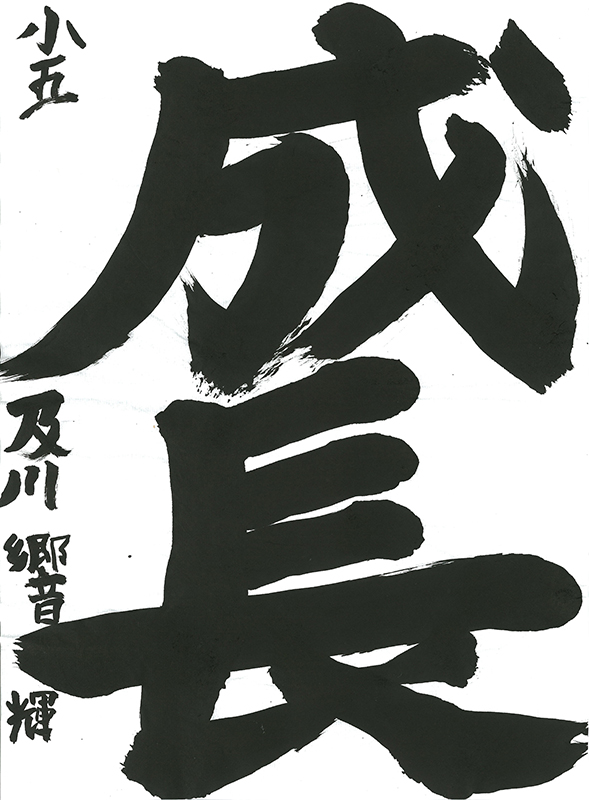 成長
小五
及川 響輝